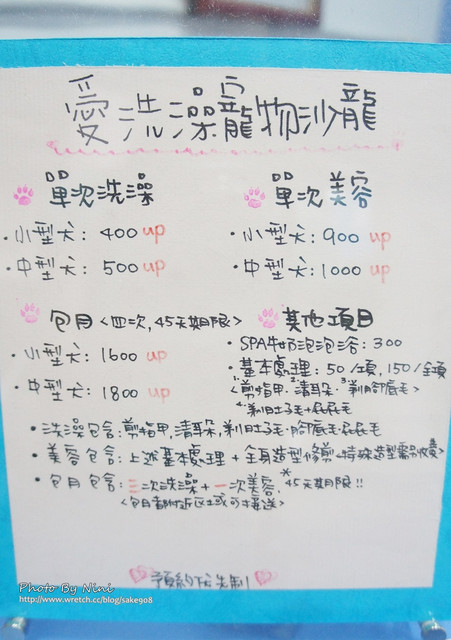 愛洗澡寵物沙龍
單次洗澡
·小型犬: 400 up
·中型犬: 500 up
單次美容
·小型犬: 900 up
·中型犬: 1000 up
包月<四次,45天期限>
·小型犬: 1600 up
·中型犬: 1800 up
其他項目
·SPA牛奶泡泡浴: 300
·基本處理: 50/1項, 150/全項
<1.剪指甲 2.清耳朵 3.剃腳底毛
4.剃肚子毛+屁屁毛
·洗澡包含:剪指甲,清耳朵,剃肚子毛.腳底毛.屁屁毛
·美容包含:上述基本處理+全身造型修剪<特殊造型需另收費>
·包月包含:三次洗澡+一次美容,*45天期限!!
<包月者附近區域可接送>
預約優先制
Photo By Nini
http://www.wretch.cc/blog/sake908